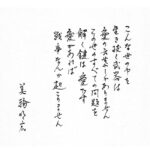 こんな世の中を
生き抜く武器は
愛の しかありません
この世のすべての問題を
解く鍵は愛です
愛があれば
戦争なんか起こりません
美輪明宏